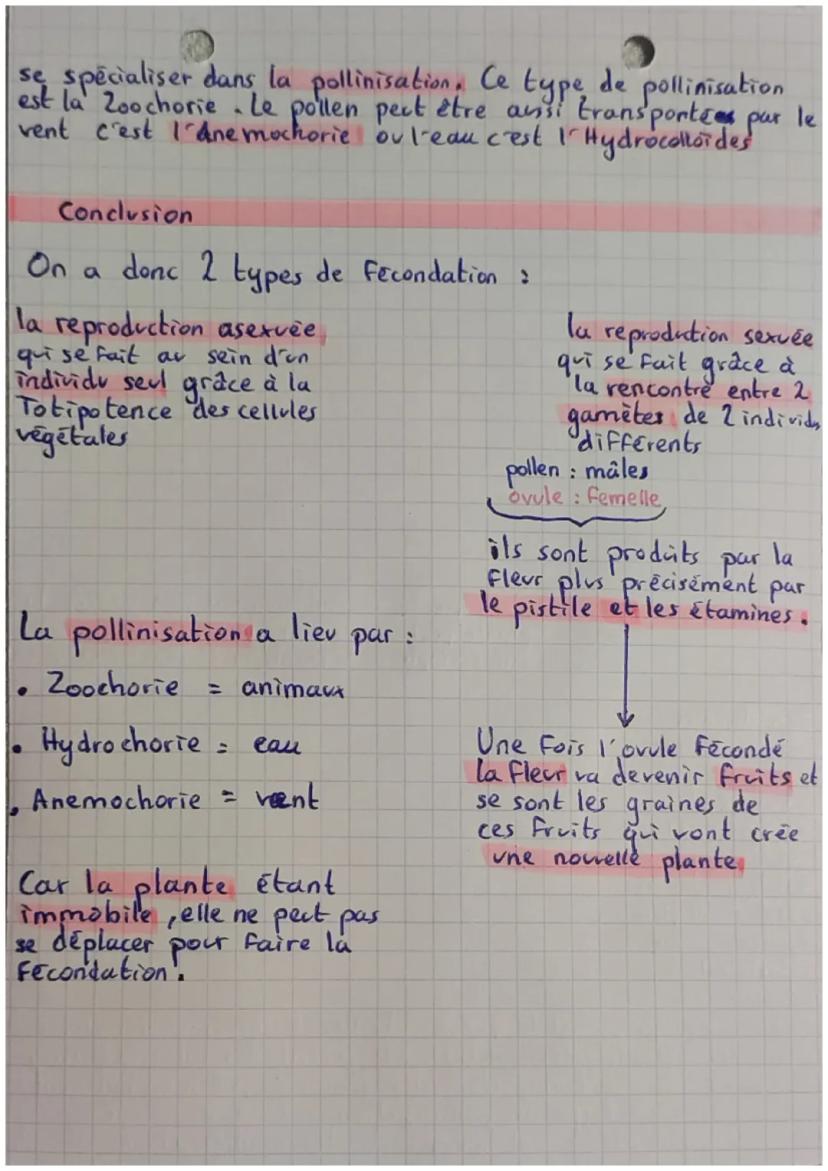 se spécialiser dans la pollinisation. Ce type de pollinisation
est la Zoochorie. Le pollen peut être aussi transportées par le
vent c'est l'Anemochorie ou l'eau c'est l'Hydrocolloïdes
Conclusion
On a donc 2 types de fécondation :
la reproduction asexuée
qui se fait au sein d'un
individu seul grâce à la
Totipotence des cellules
végétales
la reprodution sexuée
qui se fait grâce à
la rencontre entre 2
gamètes de 2 individus
différents
pollen : mâles
ovule : femelle
ils sont produits par la
fleur plus précisément par
le pistile et les étamines.
La pollinisation a lieu par :
• Zoochorie = animaux
• Hydrochorie = eau
• Anemochorie = vent
Une fois l'ovule fécondé
la fleur va devenir fruits et
se sont les graines de
ces fruits qui vont crée
une nouvelle plante
Car la plante étant
immobile, elle ne peut pas
se déplacer pour faire la
fécondation.